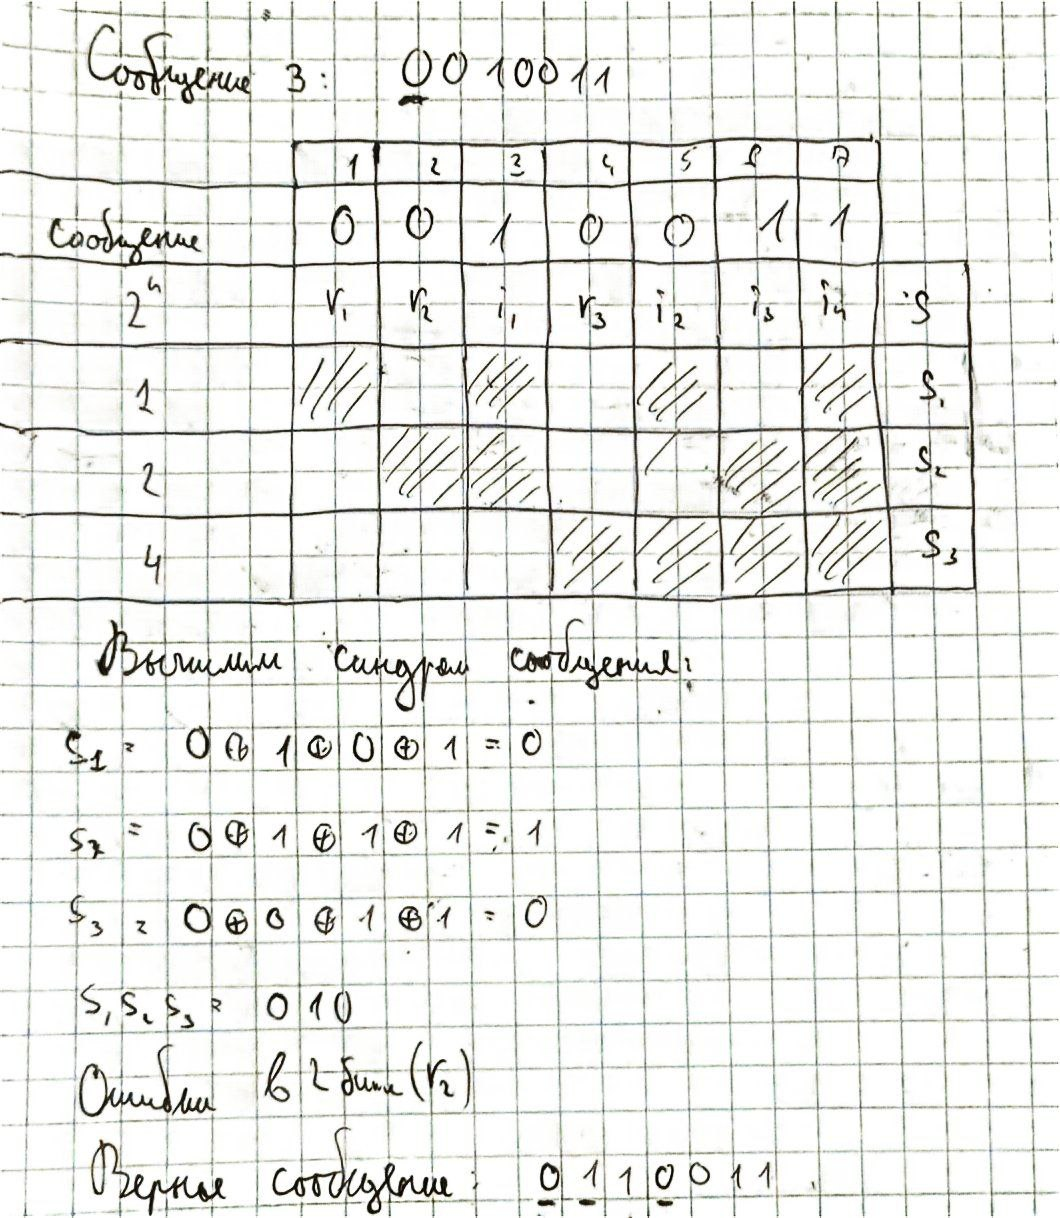 Сообщение 3: 0010011
1 2 3 4 5 6 7
сообщение 0 0 1 0 0 1 1
2ⁿ r₁ r₂ i₁ r₃ i₂ i₃ i₄ S
1 S₁
2 S₂
4 S₃
Вычислим синдром сообщения:
S₁ = 0 ⊕ 1 ⊕ 0 ⊕ 1 = 0
S₂ = 0 ⊕ 1 ⊕ 1 ⊕ 1 = 1
S₃ = 0 ⊕ 0 ⊕ 1 ⊕ 1 = 0
S₁S₂S₃ = 010
Ошибка в 2 бите (r₂)
Верное сообщение: 0110011